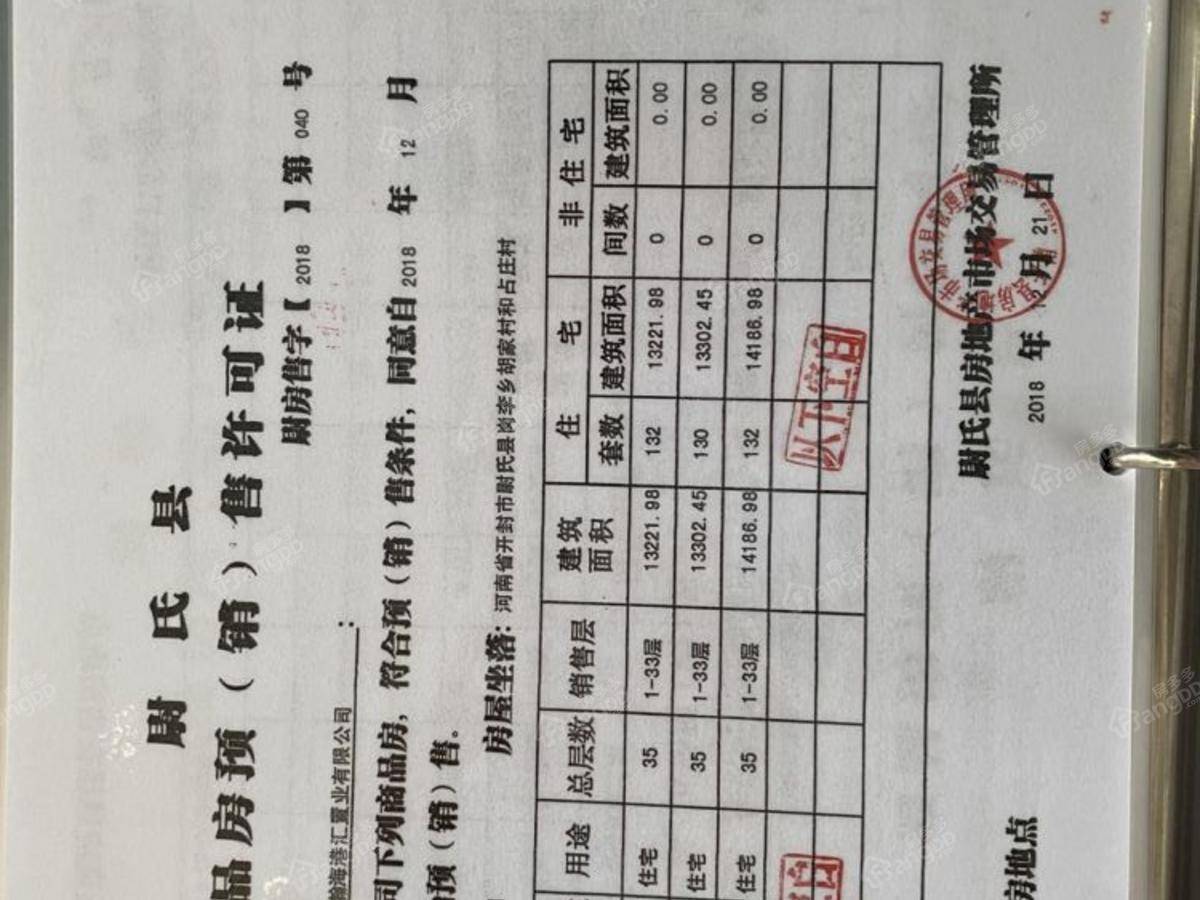 尉氏县
品房预(销)售许可证
尉房售字【2018】第040号
瀚海港汇置业有限公司:
司下列商品房,符合预(销)售条件,同意自2018年12月
预(销)售。
房屋坐落:河南省开封市尉氏县岗李乡胡家村和占庄村
用途 总层数 销售层 建筑面积 住宅 非住宅
套数 建筑面积 间数 建筑面积
住宅 35 1-33层 13221.98 132 13221.98 0 0.00
住宅 35 1-33层 13302.45 130 13302.45 0 0.00
住宅 35 1-33层 14186.98 132 14186.98 0 0.00
以下空白
房地点
尉氏县房地产市场交易管理所
2018年12月21日